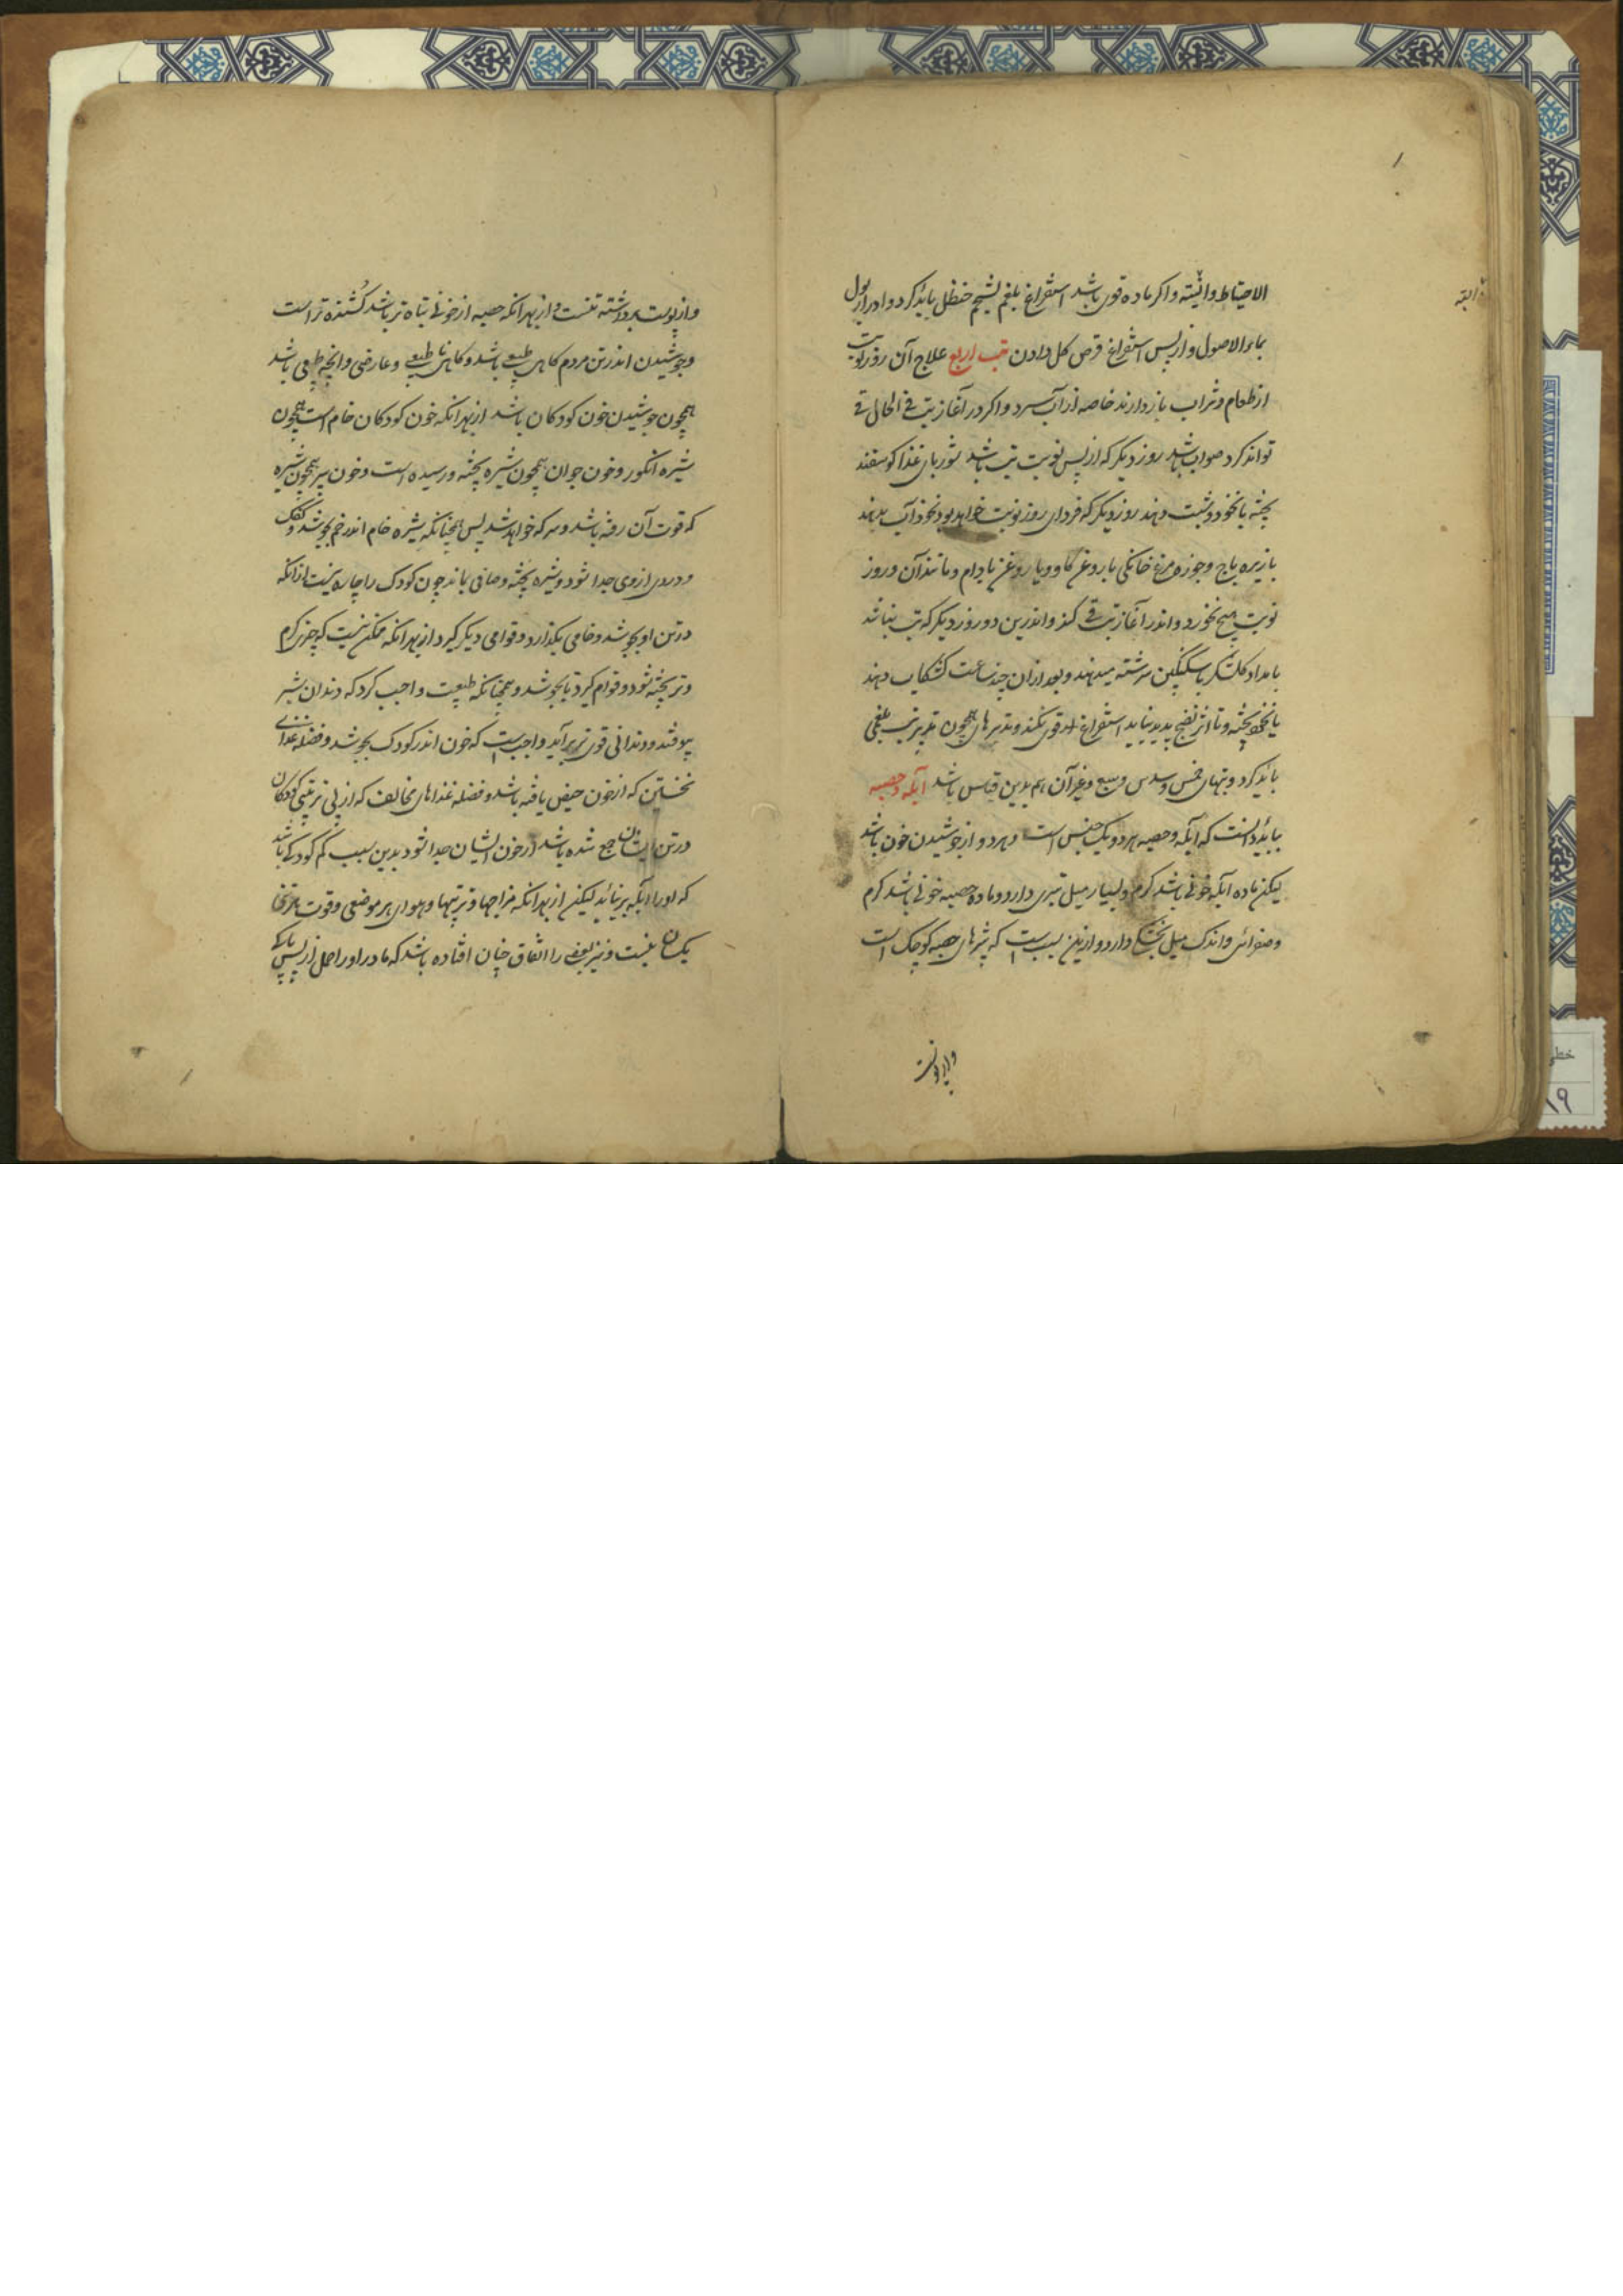 الاحتیاط والیته واکر ماده قوی باشد استفراغ بلغم بشحم حنظل باید کرد وادرار بول
بماء الاصول واز پس استفراغ قرص کل دادن تب ربع علاج آن روز نوبت
از طعام وشراب باز دارند خاصه از آب سرد واکر در آغاز تب فی الحال قی
تواند کرد صواب باشد روز دیکر که از پس نوبت تب باشد شوربای غذا کوسفند
پخته با نخود وشبت دهند روز دیکر که فردای روز نوبت خواهد بود نخود آب بدهند
با زیره باج وجوزه مرغ خانکی با روغن کاو ویا روغن بادام ومانند آن وروز
نوبت هیچ نخورد واندر آغاز تب قی کند واندرین دو روز دیکر که تب نباشد
بامداد کلشکر با سکنکبین سرشته میدهند وبعد ازان چند ساعت کشکاب دهند
با نخود پخته وتا اثر نضج پدید نیاید استفراغ قوی نکند وتدبیرهای همچون تدبیر تب بلغمی
باید کرد وتبهای خمس وسدس وسبع وغیر آن هم بدین قیاس باشد آبله وحصبه
بباید دانست که آبله وحصبه هر دو یک جنس است وهر دو از جوشیدن خون باشد
لیکن ماده آبله خونی باشد کرم وبسیار میل تری دارد وماده حصبه خونی باشد کرم
وصفرائی واندک میل بخشکی دارد وازین سبب است که بثرهای حصبه کوچک است
واز پوست
واز پوست برداشته نیست واز بهر آنکه حصبه از خونی تباه تر باشد کشنده تر است
وجوشیدن اندر تن مردم کاهی طبیعی باشد وکاهی نا طبیعی وعارضی وانچه طبیعی باشد
همچون جوشیدن خون کودکان باشد از بهر آنکه خون کودکان خام است همچون
شیره انکور وخون جوان همچون شیره پخته ورسیده است وخون پیر همچون شیره
که قوت آن رفته باشد وسرکه خواهد شد پس همچنانکه شیره خام اندر خم بجوشد وکفک
ودردی از وی جدا شود وشیره پخته وصافی بماند چون کودک را چاره نیست از آنکه
در تن او بجوشد وخامی بکذارد وقوامی دیکر کیرد از بهر آنکه ممکن نیست که چیز کرم
وتر پخته شود وقوام کیرد تا بجوشد وهمچنانکه طبیعت واجب کرد که دندان شیر
بیوفتد ودندانی قوی تر برآید واجب است که خون اندر کودک بجوشد وفضله غذای
نخستین که از خون حیض یافته باشد وفضله غذاهای مخالف که از بی ترتیبی کودکان
در تن ایشان جمع شده باشد از خون ایشان جدا شود بدین سبب کم کودکی باشد
که او را آبله برنیاید لیکن از بهر آنکه مزاجها وترتیبها وهوای هر موضعی وقوت هر تنی
یکسان نیست ونیز بعضی را اتفاق چنان افتاده باشد که مادر او را حمل از پس پاکی